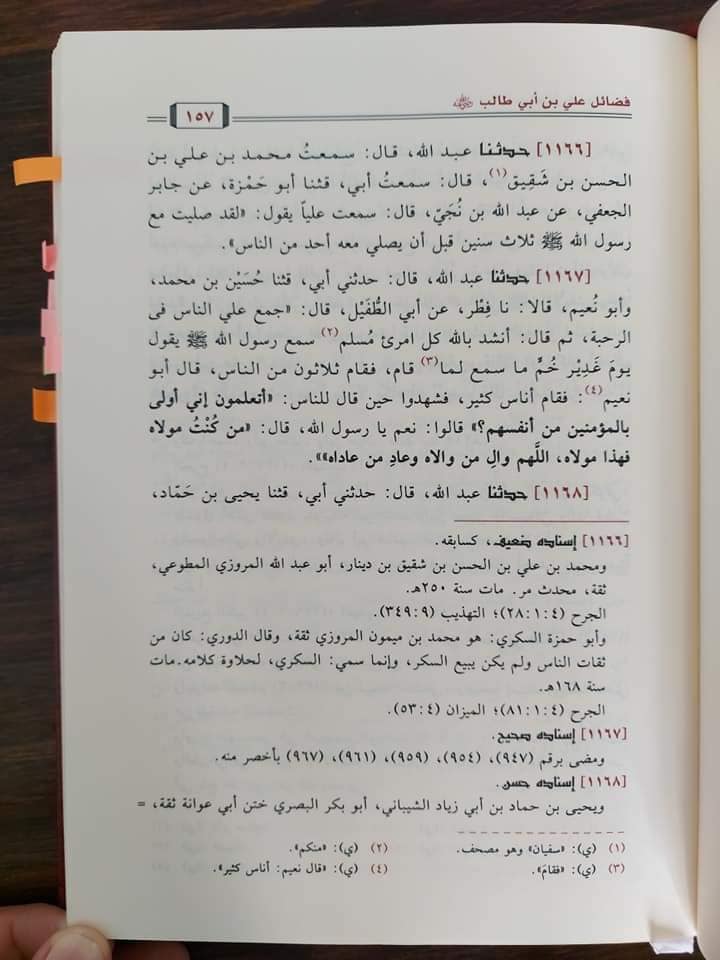 فضائل علي بن أبي طالب ﷺ
١٥٧
[١١٦٦] حدثنا عبد الله، قال: سمعتُ محمد بن علي بن
الحسن بن شَقِيق(١)، قال: سمعتُ أبي، قثنا أبو حَمْزة، عن جابر
الجعفي، عن عبد الله بن نُجَيّ، قال: سمعت علياً يقول: «لقد صليت مع
رسول الله ﷺ ثلاث سنين قبل أن يصلي معه أحد من الناس».
[١١٦٧] حدثنا عبد الله، قال: حدثني أبي، قثنا حُسَيْن بن محمد،
وأبو نُعيم، قالا: نا فِطْر، عن أبي الطُّفَيْل، قال: «جمع علي الناس فى
الرحبة، ثم قال: أنشد بالله كل امرئ مُسلم(٢) سمع رسول الله ﷺ يقول
يومَ غَدِيْر خُمٍّ ما سمع لما(٣) قام، فقام ثلاثون من الناس، قال أبو
نعيم(٤): فقام أناس كثير، فشهدوا حين قال للناس: «أتعلمون إني أولى
بالمؤمنين من أنفسهم؟» قالوا: نعم يا رسول الله، قال: «من كُنْتُ مولاه
فهذا مولاه، اللَّهم والِ من والاه وعادِ من عاداه»».
[١١٦٨] حدثنا عبد الله، قال: حدثني أبي، قثنا يحيى بن حَمّاد،
[١١٦٦] إسناده ضعيف، كسابقه.
ومحمد بن علي بن الحسن بن شقيق بن دينار، أبو عبد الله المروزي المطوعي،
ثقة، محدث مر. مات سنة ٢٥٠هـ.
الجرح (٢٨:١:٤)؛ التهذيب (٣٤٩:٩).
وأبو حمزة السكري: هو محمد بن ميمون المروزي ثقة، وقال الدوري: كان من
ثقات الناس ولم يكن يبيع السكر، وإنما سمي: السكري، لحلاوة كلامه. مات
سنة ١٦٨هـ.
الجرح (٨١:١:٤)؛ الميزان (٥٣:٤).
[١١٦٧] إسناده صحيح.
ومضى برقم (٩٤٧)، (٩٥٤)، (٩٥٩)، (٩٦١)، (٩٦٧) بأخصر منه.
[١١٦٨] إسناده حسن.
ويحيى بن حماد بن أبي زياد الشيباني، أبو بكر البصري ختن أبي عوانة ثقة، =
(١) (ي): «سفيان» وهو مصحف. (٢) (ي): «منكم».
(٣) (ي): «فقامَ». (٤) (ي): «قال نعيم: أناس كثير».